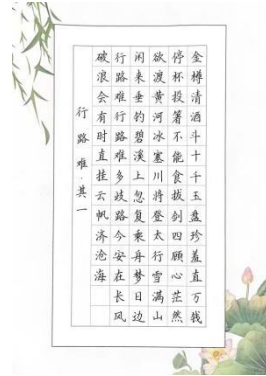 金樽清酒斗十千玉盘珍羞直万钱
停杯投箸不能食拔剑四顾心茫然
欲渡黄河冰塞川将登太行雪满山
闲来垂钓碧溪上忽复乘舟梦日边
行路难行路难多歧路今安在长风
破浪会有时直挂云帆济沧海
行路难·其一